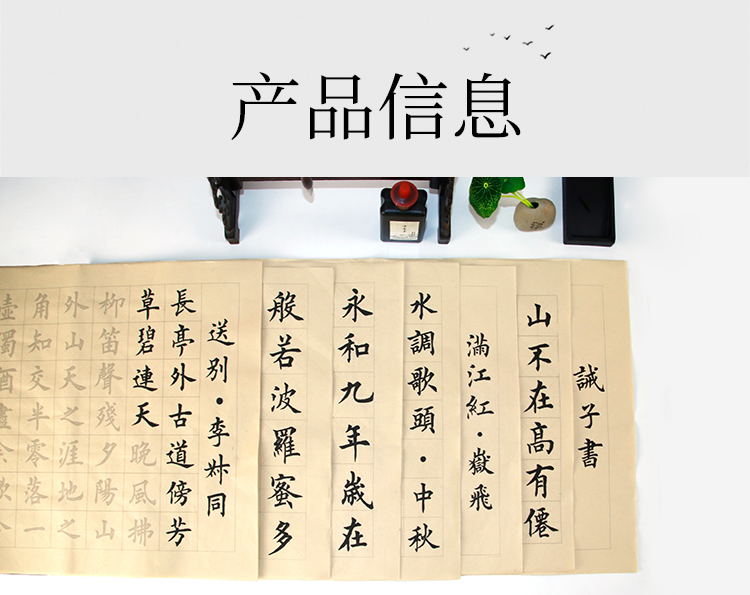 产品信息
誡子書
山不在高有僊
滿江紅·嶽飛
水調歌頭·中秋
永和九年歲在
般若波羅蜜多
送別·李叔同
長亭外古道傍芳
草碧連天晚風拂
柳笛聲殘夕陽山
外山天之涯地之
角知交半零落一
壺濁酒盡余歡今